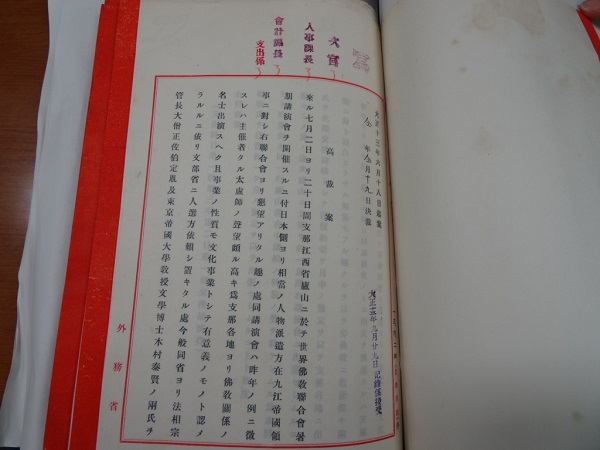 次官
人事課長
會計課長
支出係
大正十三年六月十八日起案
年 月十九日決裁
高裁案
大正十三年 月廿九日記錄係接受
來ル七月二日ヨリ二十日間支那江西省廬山ニ於テ世界佛敎聯合會暑
期講演會ヲ開催スルニ付日本側ヨリ相當ノ人物派遣方在九江帝國領
事ニ對シ右聯合會ヨリ懇望アリタル趣ノ處同講演會ハ昨年ノ例ニ徵
スレハ主催者タル太虛師ノ聲望頗ル高キ爲支那各地ヨリ佛敎關係ノ
名士出演スヘク且事業ノ性質モ文化事業トシテ有意義ノモノト認メ
ラルルニ依リ文部省ニ人選方依賴シ置キタル處今般同省ヨリ法相宗
管長大僧正佐伯定胤及東京帝國大學敎授文學博士木村泰賢ノ兩氏ヲ
外務省